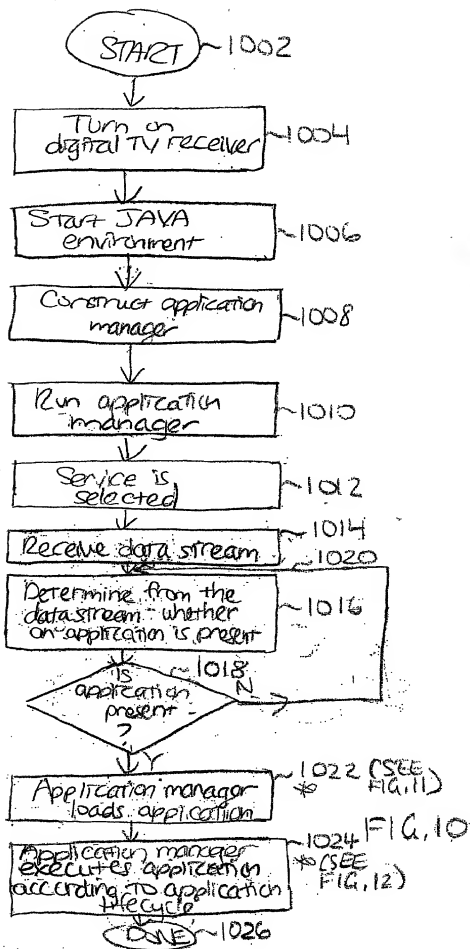 START
1002
Turn on
digital TV receiver
1004
Start JAVA
environment
1006
Construct application
manager
1008
Run application
manager
1010
Service is
selected
1012
1014
Receive data stream
1020
Determine from the
datastream whether
an application is present
1016
1018
Is
application
present
?
N
Y
Application manager
loads application
1022 (SEE
* FIG. 11)
FIG. 10
Application manager
executes application
according to application
lifecycle
1024
* (SEE
FIG. 12)
DONE
1026